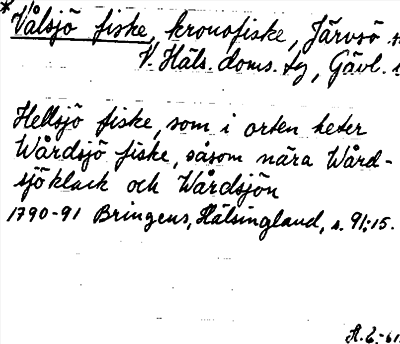 * Vålsjö fiske, kronofiske, Järvsö s
V. Häls. doms. tg, Gävl. l
Hellsjö fiske, som i orten heter
Wårdsjö fiske, såsom nära Wård-
sjöklack och Wårdsjön
1790-91 Bringens, Hälsingland, s. 91:15.
A.E.-61